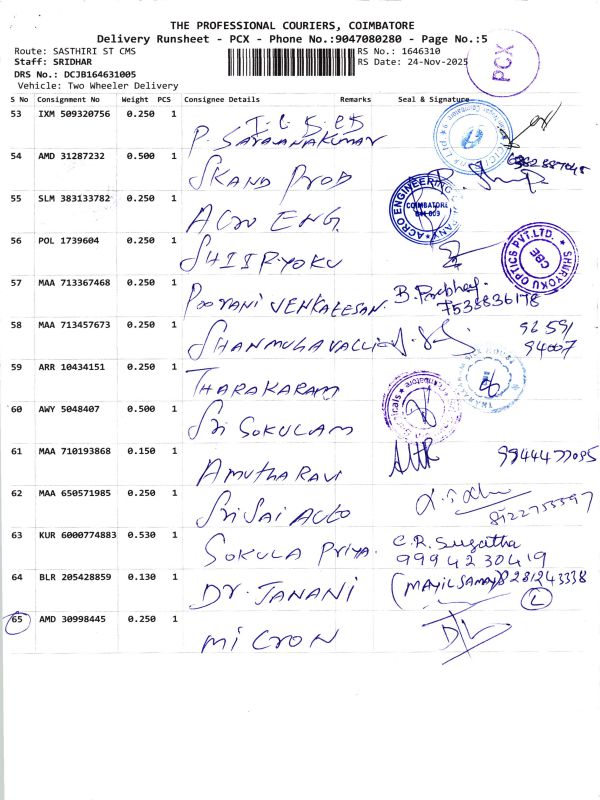 THE PROFESSIONAL COURIERS, COIMBATORE
Delivery Runsheet - PCX - Phone No.:9047080280 - Page No.:5
Route: SASTHIRI ST CMS RS No.: 1646310
Staff: SRIDHAR RS Date: 24-Nov-2025
DRS No.: DCJB164631005
Vehicle: Two Wheeler Delivery
PCX
S No Consignment No Weight PCS Consignee Details Remarks Seal & Signature
53 IXM 509320756 0.250 1
P. SARAVANAKUMAR
54 AMD 31287232 0.500 1 SKAND PROD
55 SLM 383133782 0.250 1 ACRO ENG.
ACRO ENGINEERING COMPANY
COIMBATORE
56 POL 1739604 0.250 1 SHIIRYOKU
SHURTOKU OPTICS PVT.LTD.
CBE
57 MAA 713367468 0.250 1 POORANI VENKATESAN. B. Prabhay.
7538836178
58 MAA 713457673 0.250 1 SHANMUGAVALLI 92591
94007
59 ARR 10434151 0.250 1 THARAKARAM
60 AWY 5048407 0.500 1 Sri GOKULAM
61 MAA 710193868 0.150 1 AMUTHA RAVI
62 MAA 650571985 0.250 1 Sri Sai AUTO
63 KUR 6000774883 0.530 1 GOKULA PRIYA. C.R. Sugatha
9994230419
64 BLR 205428859 0.130 1 Dr. JANANI (MAYILSAMAY)
L
65 AMD 30998445 0.250 1 MICRON